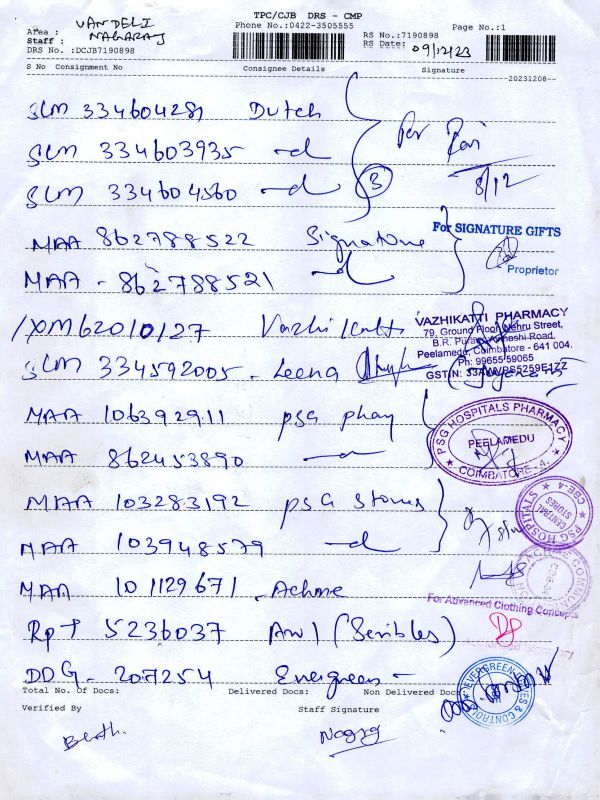 TPC/CJB DRS - CMP
Area : VANDELI
Phone No.:0422-3505555
Page No.:1
Staff : NAGARAJ
RS No.:7190898
DRS No. :DCJB7190898
RS Date: 09/12/23
S No Consignment No Consignee Details Signature
20231208
SLM 334604281 Dutch
SLM 334603935 —d
SLM 334604560 —d
3
For Rai
8/12
MAA 862788522 Signature
For SIGNATURE GIFTS
MAA - 862788521 —d
Proprietor
/XM62010127 Vazhikatti
VAZHIKATTI PHARMACY
79, Ground Floor, Nehru Street,
Avinashi Road,
Peelamedu, Coimbatore - 641 004.
Ph: 99655 59065
GSTIN: 5259E1ZZ
SLM 334592005 - Leena
MAA 106392911 psg phay
PSG HOSPITALS PHARMACY
PEELAMEDU
COIMBATORE-4.
MAA 862453890 —d
MAA 103283192 psG stores
PSG HOSPITALS
CENTRAL STORES
MAA 103948579 —d
MAA 101129671 - Achme
For Advanced Clothing Concepts
Rpt 5236037 Aw1 (Scribles)
DDG - 207254 Evergreen -
EVERGREEN & CONTROL
Total No. Of Docs: Delivered Docs: Non Delivered Doc
Verified By Staff Signature
Nagrg